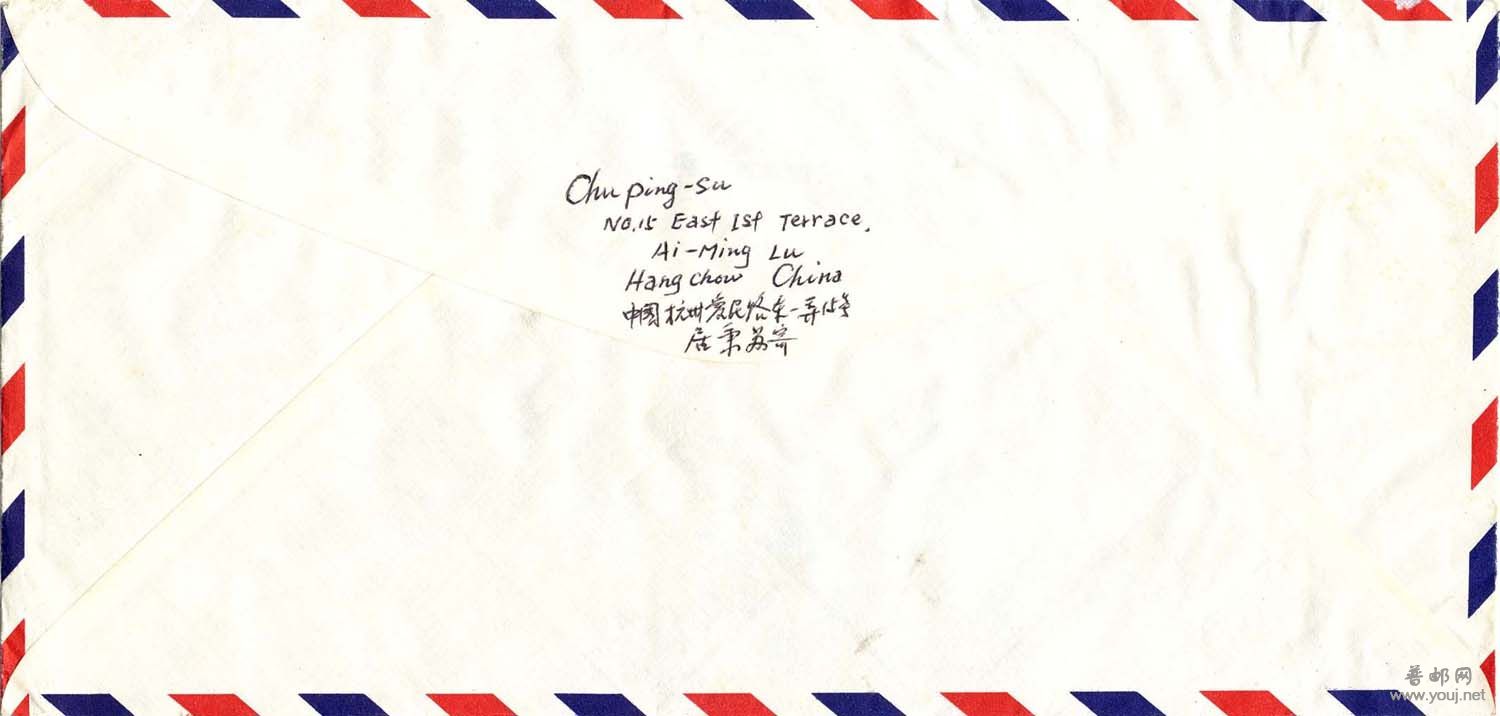 Chu Ping-Su
No.15 East 1st Terrace,
Ai-Ming Lu
Hangchow China
中國杭州爱民路东一弄15号
居秉苏寄
普邮网
www.youj.net